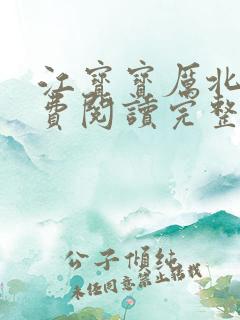 江寶寶厲北
費閱讀完整
公子傾純
未經同意禁止轉載